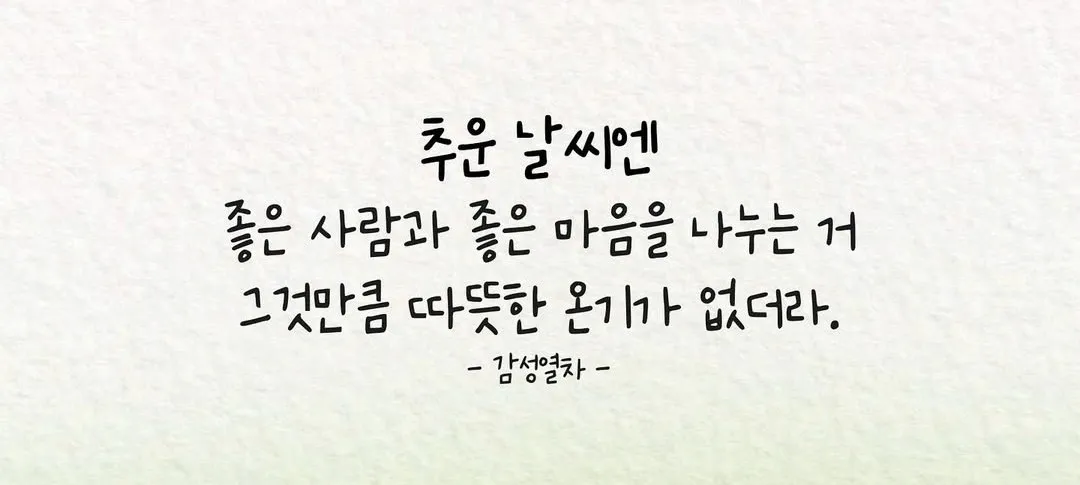 추운 날씨엔
좋은 사람과 좋은 마음을 나누는 거
그것만큼 따뜻한 온기가 없더라.
- 감성열차 -